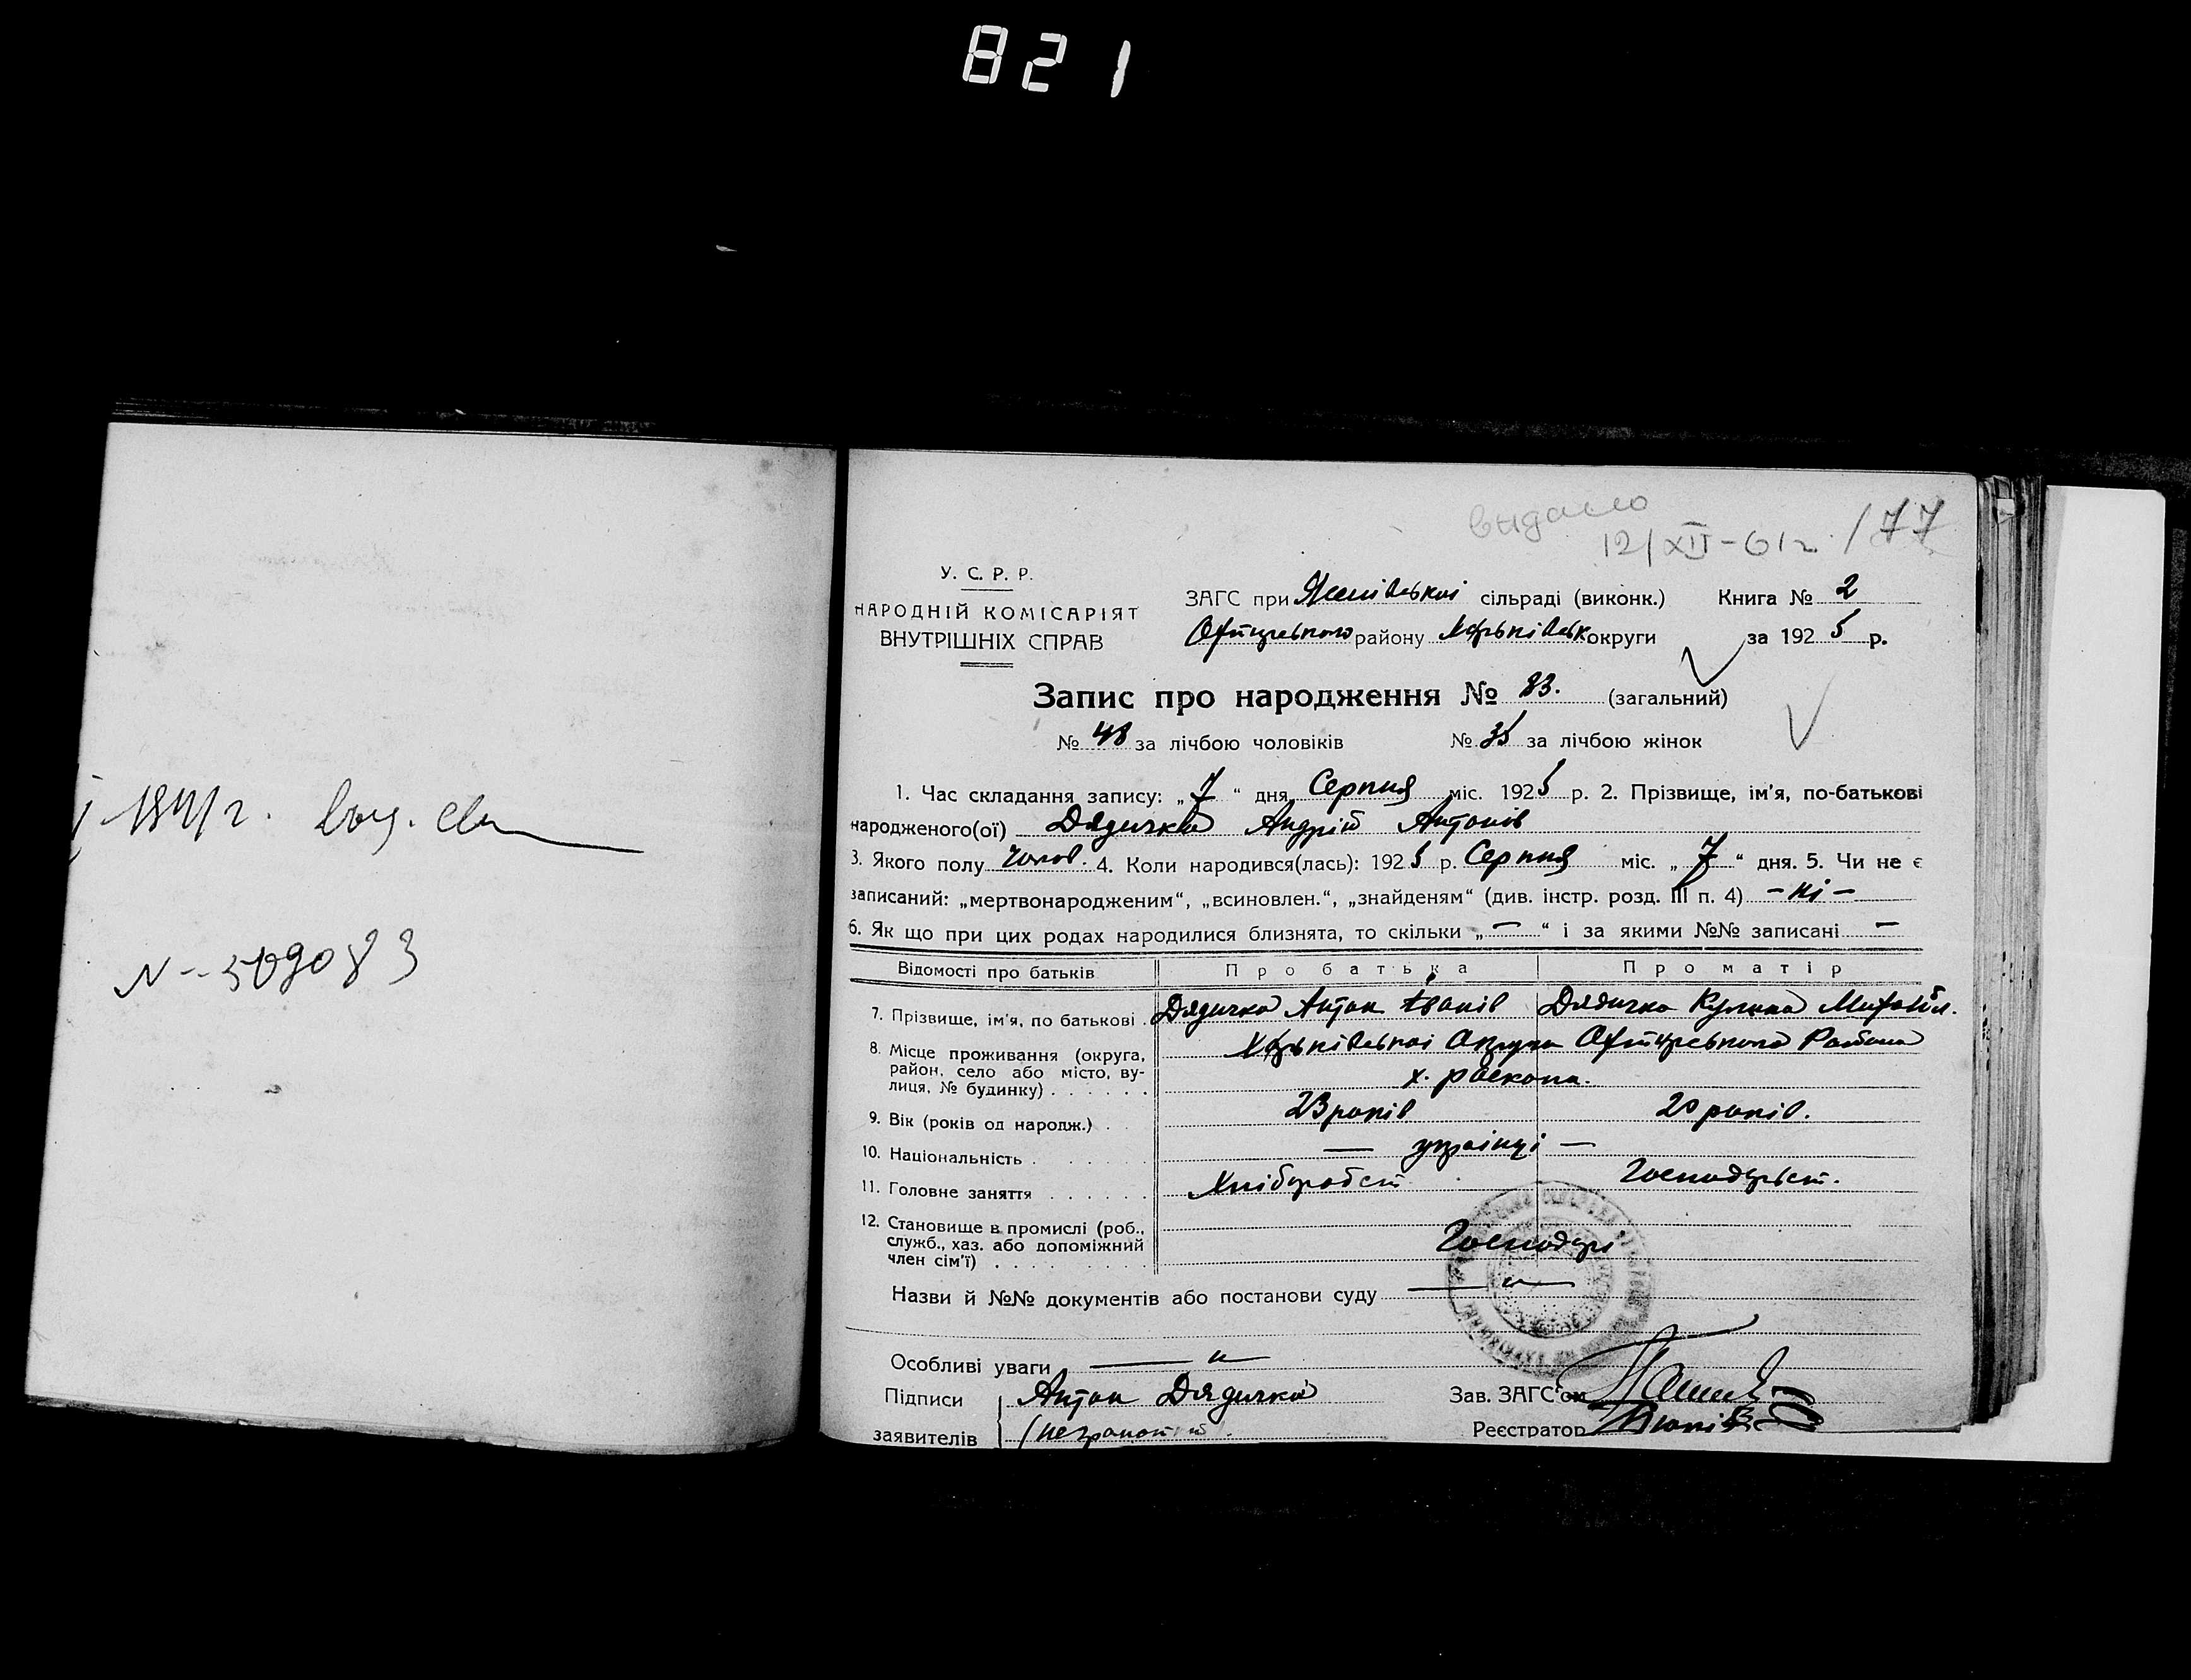 821
1941 г.
N-509083
видано
12/XII-61г. /77
У. С. Р. Р.
НАРОДНІЙ КОМІСАРІЯТ
ВНУТРІШНІХ СПРАВ
ЗАГС при сільраді (виконк.) Книга № 2
району округи за 1925 р.
Запис про народження № 83. (загальний)
№ 48 за лічбою чоловіків № 35 за лічбою жінок
1. Час складання запису: „7“ дня Серпня міс. 1925 р. 2. Прізвище, ім'я, по-батькові
народженого(ої) Дядичко Андрій Антонів
3. Якого полу Чолов. 4. Коли народився(лась): 1925 р. Серпня міс. „7“ дня. 5. Чи не є
записаний: „мертвонародженим“, „всиновлен.“, „знайденям“ (див. інстр. розд. III п. 4) - ні -
6. Як що при цих родах народилися близнята, то скільки „—“ і за якими №№ записані —
Відомості про батьків Про батька Про матір
7. Прізвище, ім'я, по батькові . Дядичко Антон Іванів Дядичко Кулина Михайл.
8. Місце проживання (округа, район, село або місто, вулиця, № будинку) . . . . . . Харьківської Округи Охтирського Района
х. Роскопа.
9. Вік (років од народж.) . . 23 років 20 років.
10. Національність . . . . . — українці —
11. Головне заняття . . . . . . Хліборобст. Господарьст.
12. Становище в промислі (роб., служб., хаз. або допоміжний член сім'ї) . . . . . . . . Господарі
Назви й №№ документів або постанови суду — „ —
Особливі уваги — „ —
Підписи Антон Дядичко Зав. ЗАГС'ом
заявителів (неграмотній). Реєстратор